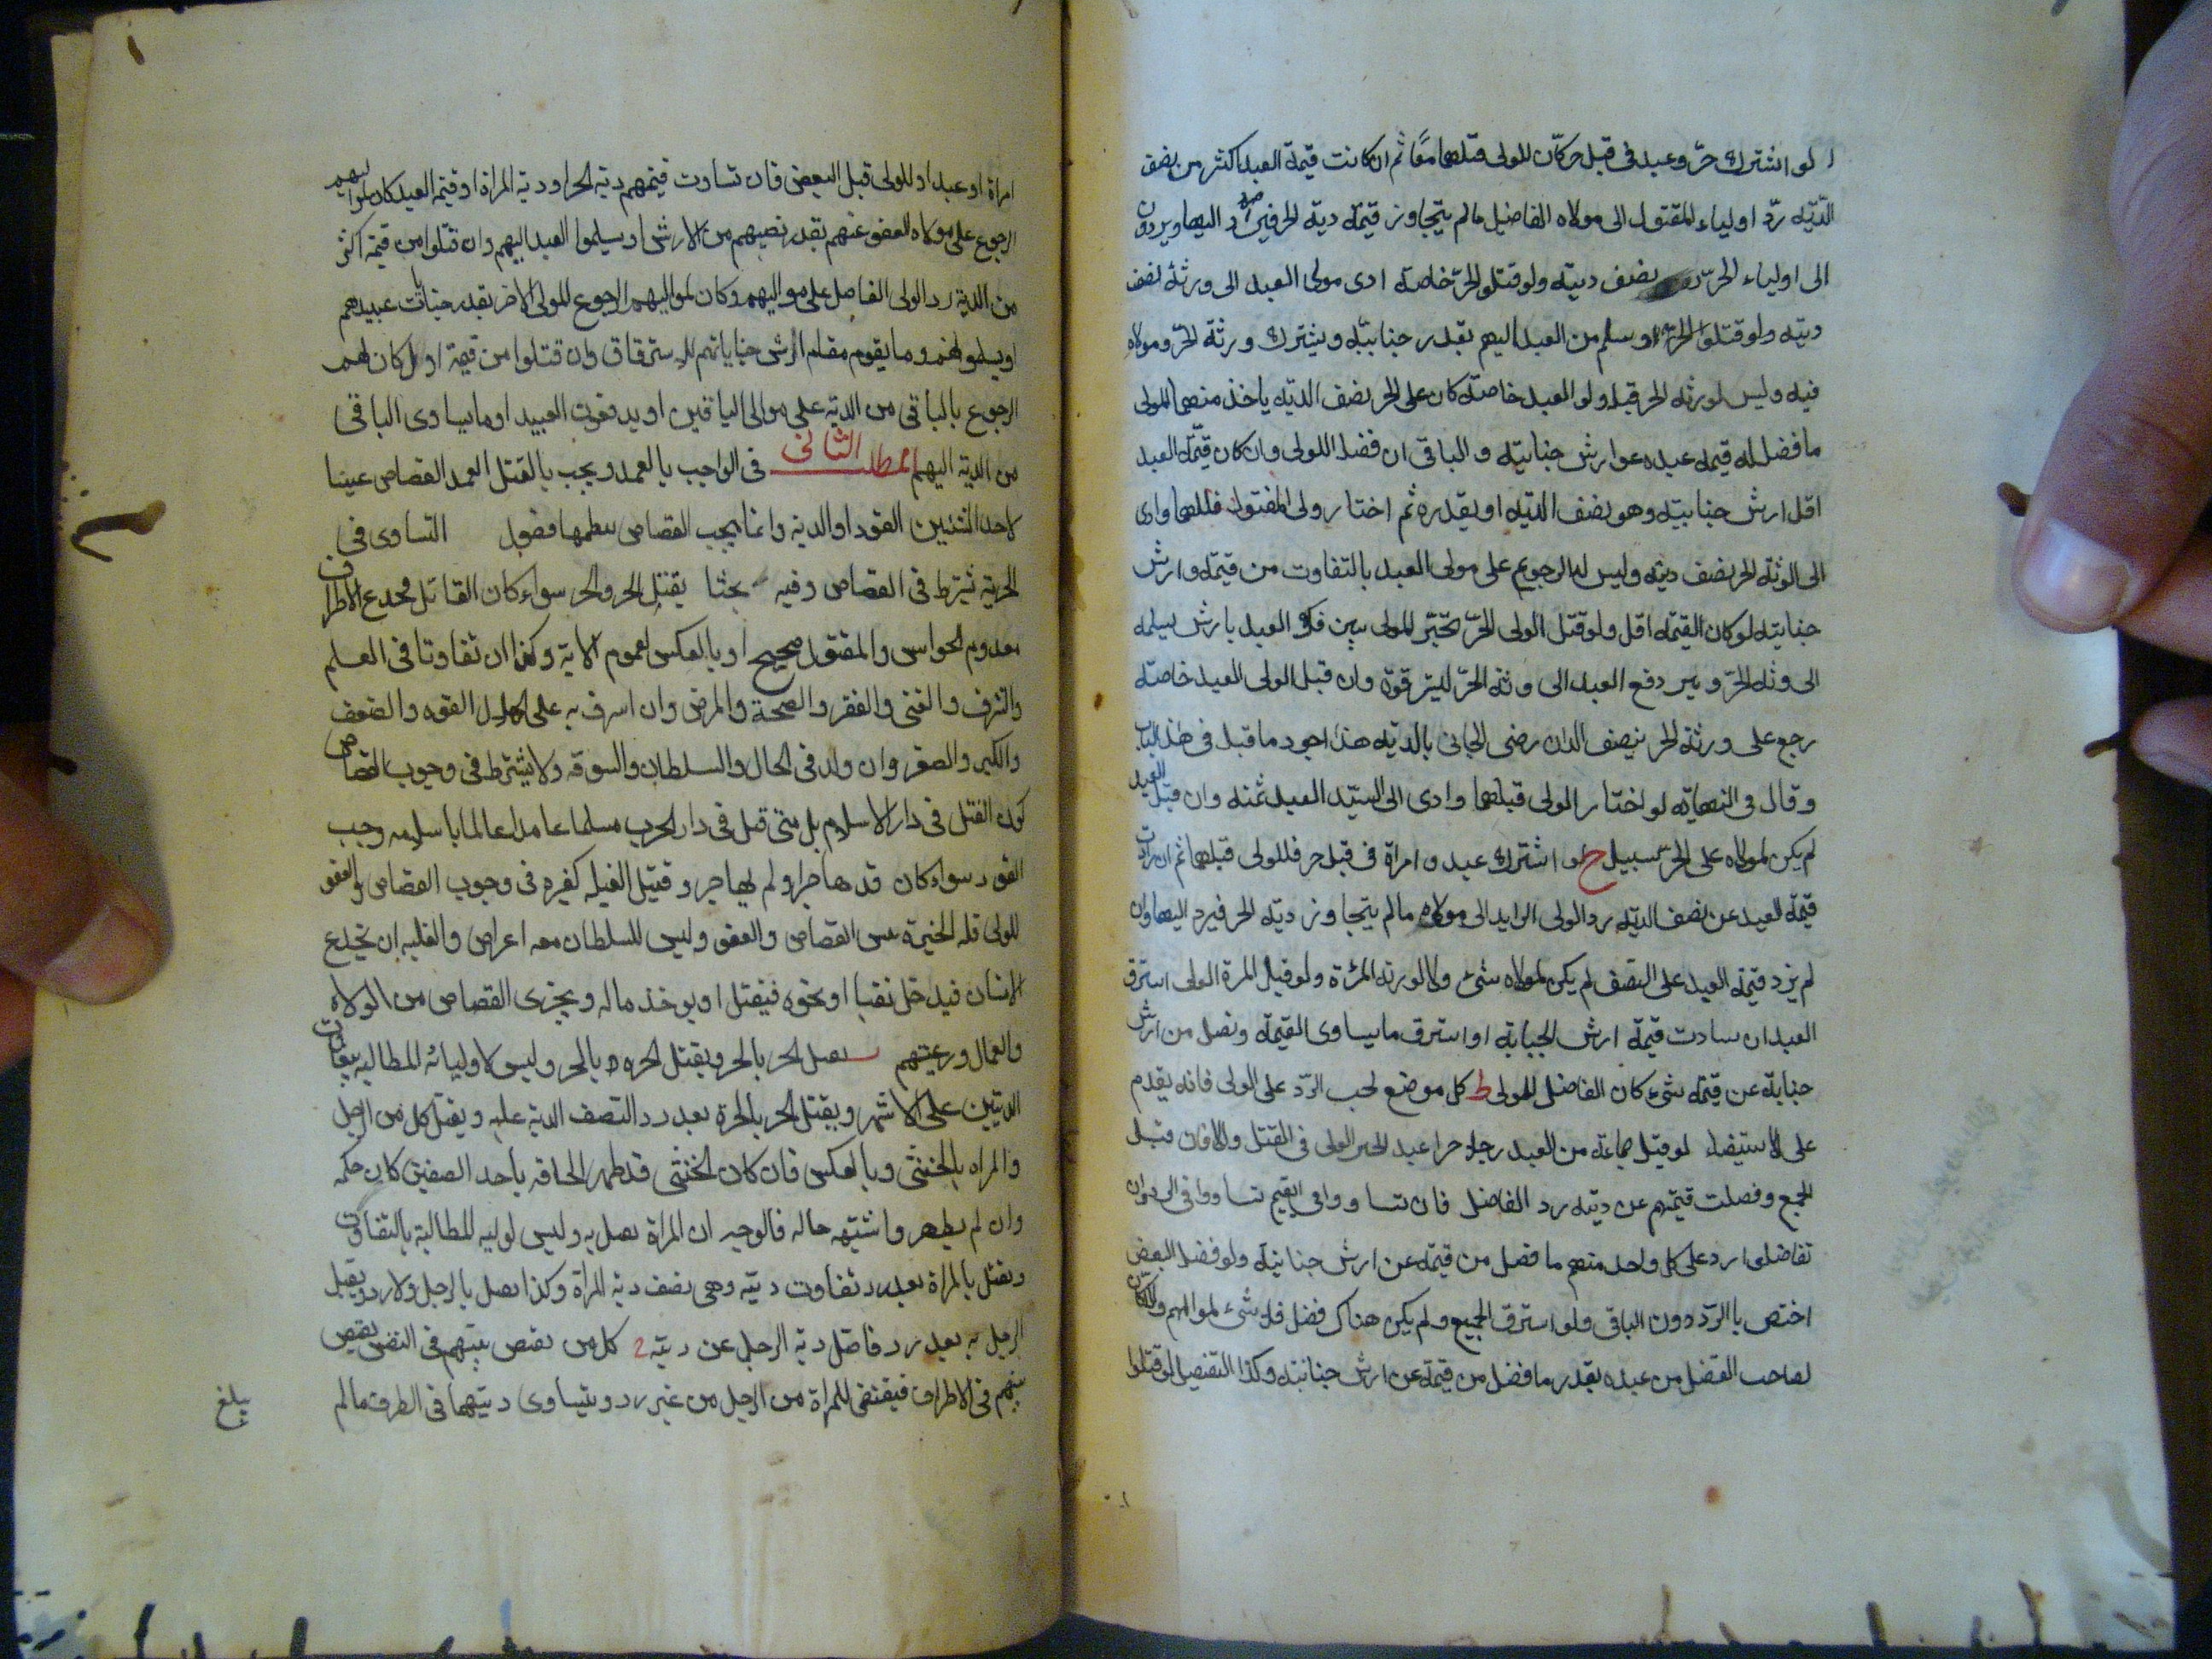 لو اشترك حرّ وعبد في قتل حر كان للولى قتلهما معًا ثم ان كانت قيمة العبد اكثر من نصف
الدّيه ردّ اولياء المقتول الى مولاه الفاضل مالم يتجاوز قيمته دية الحر فيرد اليها ويردون
الى اولياء الحرّ نصف ديته ولو قتلو الحرّ خاصة ادى مولى العبد الى ورثته نصف
ديته ولو قتلو الحرّ او سلم من العبد اليهم بقدر جنايته ويشترك ورثة الحرّ ومولاه
فيه وليس لورثه الحر قتله ولو العبد خاصة كان على الحر نصف الديه ياخذ منهما المولى
ما فضل له قيمه عبده عوارش جنايته والباقى ان فضل للولى وان كان قيمة العبد
اقل ارش جنايته وهو نصف الديه او بقدره ثم اختار ولى المقتول قتلهما وادى
الى الورثه الحر نصف ديته وليس له الرجوع على مولى العبد بالتفاوت من قيمته وارش
جنايته لو كان القيمه اقل ولو قتل الولى الحرّ تخيّر المولى بين فك العبد بارش يسلمه
الى ورثه الحرّ وبين دفع العبد الى ورثه الحرّ ليسترقوه وان قتل الولى العبد خاصة
رجع على ورثة الحر بنصف الدان رضى الجانى بالديه هذا اجود ما قيل في هذ الباب
وقال في النهايه لو اختار المولى قتلهما وادى الى السيّد العبد ثمنه وان قتل العبد
لم يكن لمولاه على الحرّ سبيل ح لو اشترك عبد وامراة في قتل حر فللولى قتلهما ثم ان زادت
قيمة العبد عن نصف الديه رد المولى الزايد الى مولاه مالم يتجاوز ديه الحر فيرد اليها وان
لم يزد قيمة العبد على النصف لم يكن لمولاه شئ ولا لورثه المرئة ولو قتل المرة الولى استرق
العبد ان ساوت قيمة ارش الجنايه او استرق ما يساوى القيمه وفضل من ارش
جنايته عن قيمته شئ كان الفاضل للمولى ط كل موضع نحب الردّ على الولى فانه يقدم
على الاستيفاء لو قتل جماعة من العبد رجلا حرا عبد الولى فى القتل والا فان قتل
الجمع وفضلت قيمتهم عن ديته رد الفاضل فان تساووا فى القيم تساووا فى الرد وان
تفاضلوا رد على كل واحد منهم ما فضل من قيمته عن ارش جنايته ولو فضل البعض
اختص بالردّ دون الباقى ولو استرق الجميع ولم يكن هناك فضل فلا شئ لمواليهم والا كان
لصاحب الفضل من عبده بقدر ما فضل من قيمته عن ارش جنايته وكذا التفصيل لو قتلوا
امراة او عبدا وللولى قتل البعض فان تساوت قيمتهم دية الحر او دية المراة او قيمة العبد كان لمواليهم
الرجوع على مولاه العفو عنهم بقدر نصيبهم من الارش او يسلموا العبد اليهم وان قتلوا من قيمته اكثر
من الدية رد الولى الفاضل على مواليهم وكان لمواليهم الرجوع للمولى الاخر بقدر جنايات عبيدهم
او يسلموا لهم وما يقوم مقام ارش جناياتهم للاسترقاق وان قتلوا من قيمة اول كان لهم
الرجوع بالباقى من الدية على موالى الباقين او يدفعون العبيد او ما يساوى الباقى
من الدية اليهم المطلب الثانى فى الواجب بالعمد ويجب بالقتل العمد القصاص عينا
لاحد الشئين القود او الدية وانما يجب القصاص فصول التساوى فى
الحرية شرط فى القصاص وفيه بحثا يقتل الحر والحر سواء كان القاتل مجدع الاطراف
معدوم الحواس والمقتول صحيح او بالعكس لعموم الاية وكذا ان تفاوتا فى العلم
والشرف والغنى والفقر والصحة والمرض وان اسرف به على الهلاك القوه والضعف
والكبر والصغر وان ولد فى الحال والسلطان والسوقة ولا يشترط فى وجوب القصاص
كون القتل فى دار الاسلام بل متى قتل فى دار الحرب مسلما عامدا عالما باسلامه وجب
القود سواء كان قد هاجر او لم يهاجر وقتيل الغيله كغيره فى وجوب القصاص والعفو
للولى فله الخيرة بين القصاص والعفو وليس للسلطان معه اعراض والغليه ان يخدع
الانسان فيدخل نقبا او نحوه فيقتل او يوخذ ماله ويجزى القصاص من الولاه
والعمال ورعيتهم يقتل الحر بالحر ويقتل الحره بالحر وليس لاوليائه المطالبه بتفاوت
الديتين على الاشهر ويقتل الحر بالحرة بعد رد النصف الدية عليه ويقتل كل من الرجل
والمراه بالخنثى وبالعكس فان كان الخنثى قد ظهر الحاقه باحد الصفين كان حكمه
وان لم يظهر واشتبهه حاله فالوجه ان المراة يقتل به وليس لوليه المطالبة بالتفاوت
ويقتل بالمراة بعد رد تفاوت ديته وهى نصف دية المراة وكذا يقتل بالرجل ولا رد ويقتل
الرجل به بعد رد فاضل دية الرجل عن ديته 2 كل من يقتص بينهم فى النفس يقتص
بينهم فى الاطراف فيقتص للمراة من الرجل من غير رد ويتساوى ديتهما فى الطرف مالم
بلغ